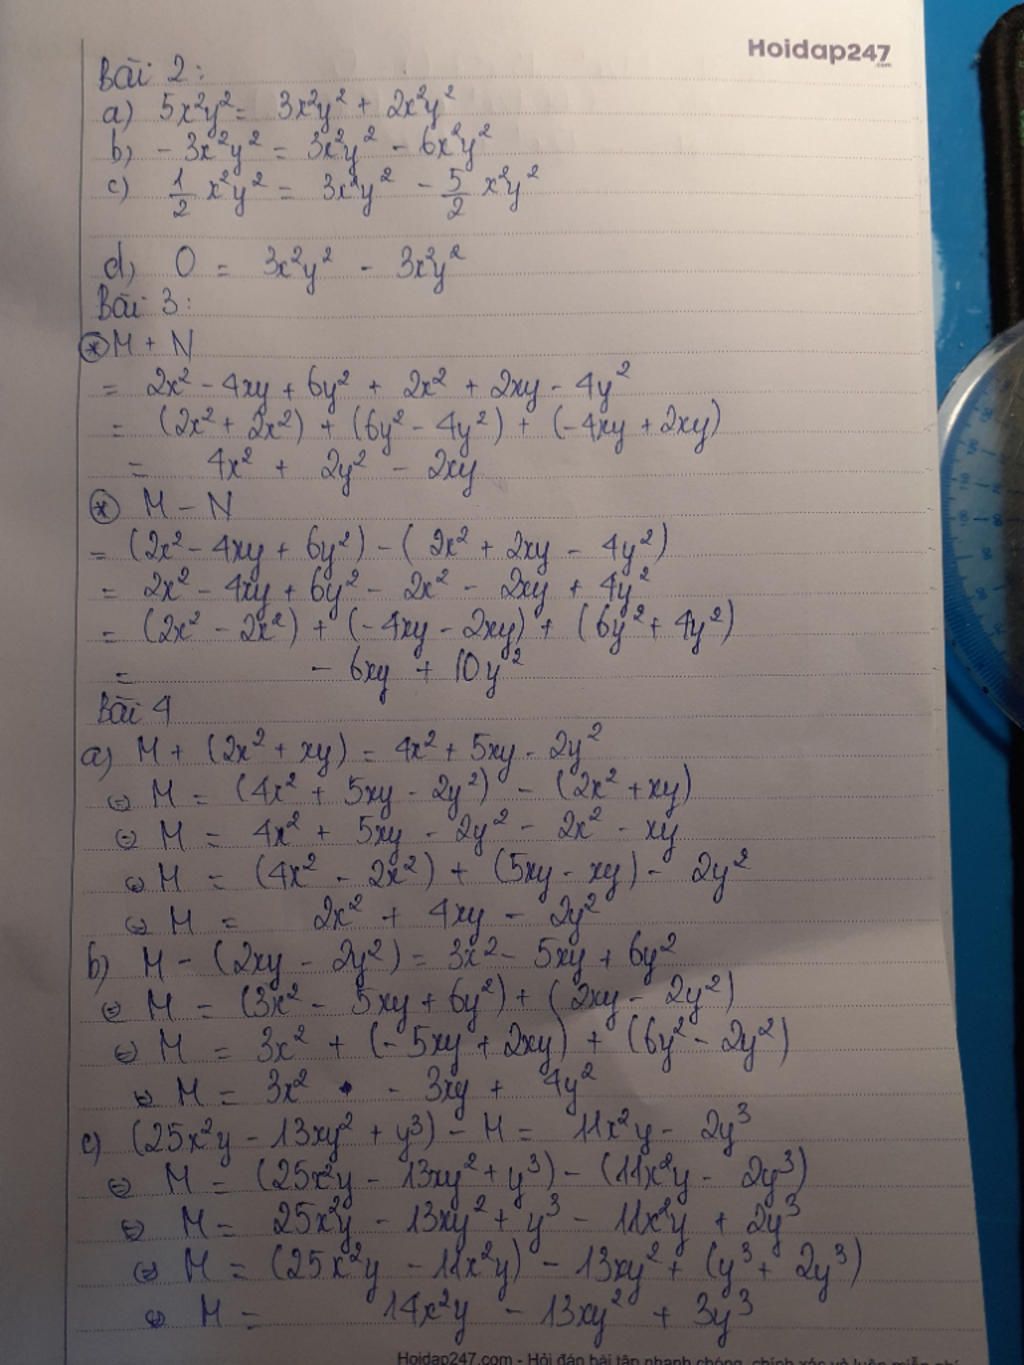 Hoidap247
.com
Bài 2:
a) 5x²y² = 3x²y² + 2x²y²
b) - 3x²y² = 3x²y² - 6x²y²
c) 1/2 x²y² = 3x²y² - 5/2 x²y²
d) 0 = 3x²y² - 3x²y²
Bài 3:
* M + N
= 2x² - 4xy + 6y² + 2x² + 2xy - 4y²
= (2x² + 2x²) + (6y² - 4y²) + (-4xy + 2xy)
= 4x² + 2y² - 2xy
* M - N
= (2x² - 4xy + 6y²) - (2x² + 2xy - 4y²)
= 2x² - 4xy + 6y² - 2x² - 2xy + 4y²
= (2x² - 2x²) + (-4xy - 2xy) + (6y² + 4y²)
= - 6xy + 10y²
Bài 4
a) M + (2x² + xy) = 4x² + 5xy - 2y²
⇔ M = (4x² + 5xy - 2y²) - (2x² + xy)
⇔ M = 4x² + 5xy - 2y² - 2x² - xy
⇔ M = (4x² - 2x²) + (5xy - xy) - 2y²
⇔ M = 2x² + 4xy - 2y²
b) M - (2xy - 2y²) = 3x² - 5xy + 6y²
⇔ M = (3x² - 5xy + 6y²) + (2xy - 2y²)
⇔ M = 3x² + (-5xy + 2xy) + (6y² - 2y²)
⇔ M = 3x² - 3xy + 4y²
c) (25x²y - 13xy² + y³) - M = 11x²y - 2y³
⇔ M = (25x²y - 13xy² + y³) - (11x²y - 2y³)
⇔ M = 25x²y - 13xy² + y³ - 11x²y + 2y³
⇔ M = (25x²y - 11x²y) - 13xy² + (y³ + 2y³)
⇔ M = 14x²y - 13xy² + 3y³
Hoidap247.com - Hỏi đáp bài tập nhanh chóng, chính xác và luôn miễn phí